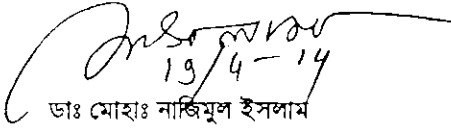 19/4-14
ডাঃ মোহাঃ নাজিমুল ইসলাম